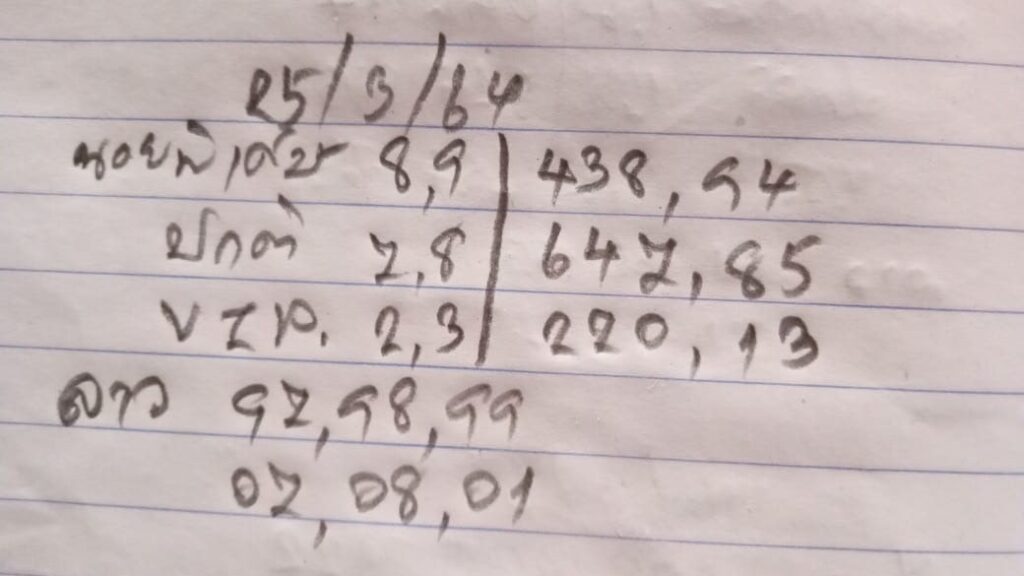 25/3/64
นอยพิเศษ 8,9 | 438, 94
ปกติ 7,8 | 647, 85
VIP. 2,3 | 220, 13
ลาว 97, 98, 99
07, 08, 01